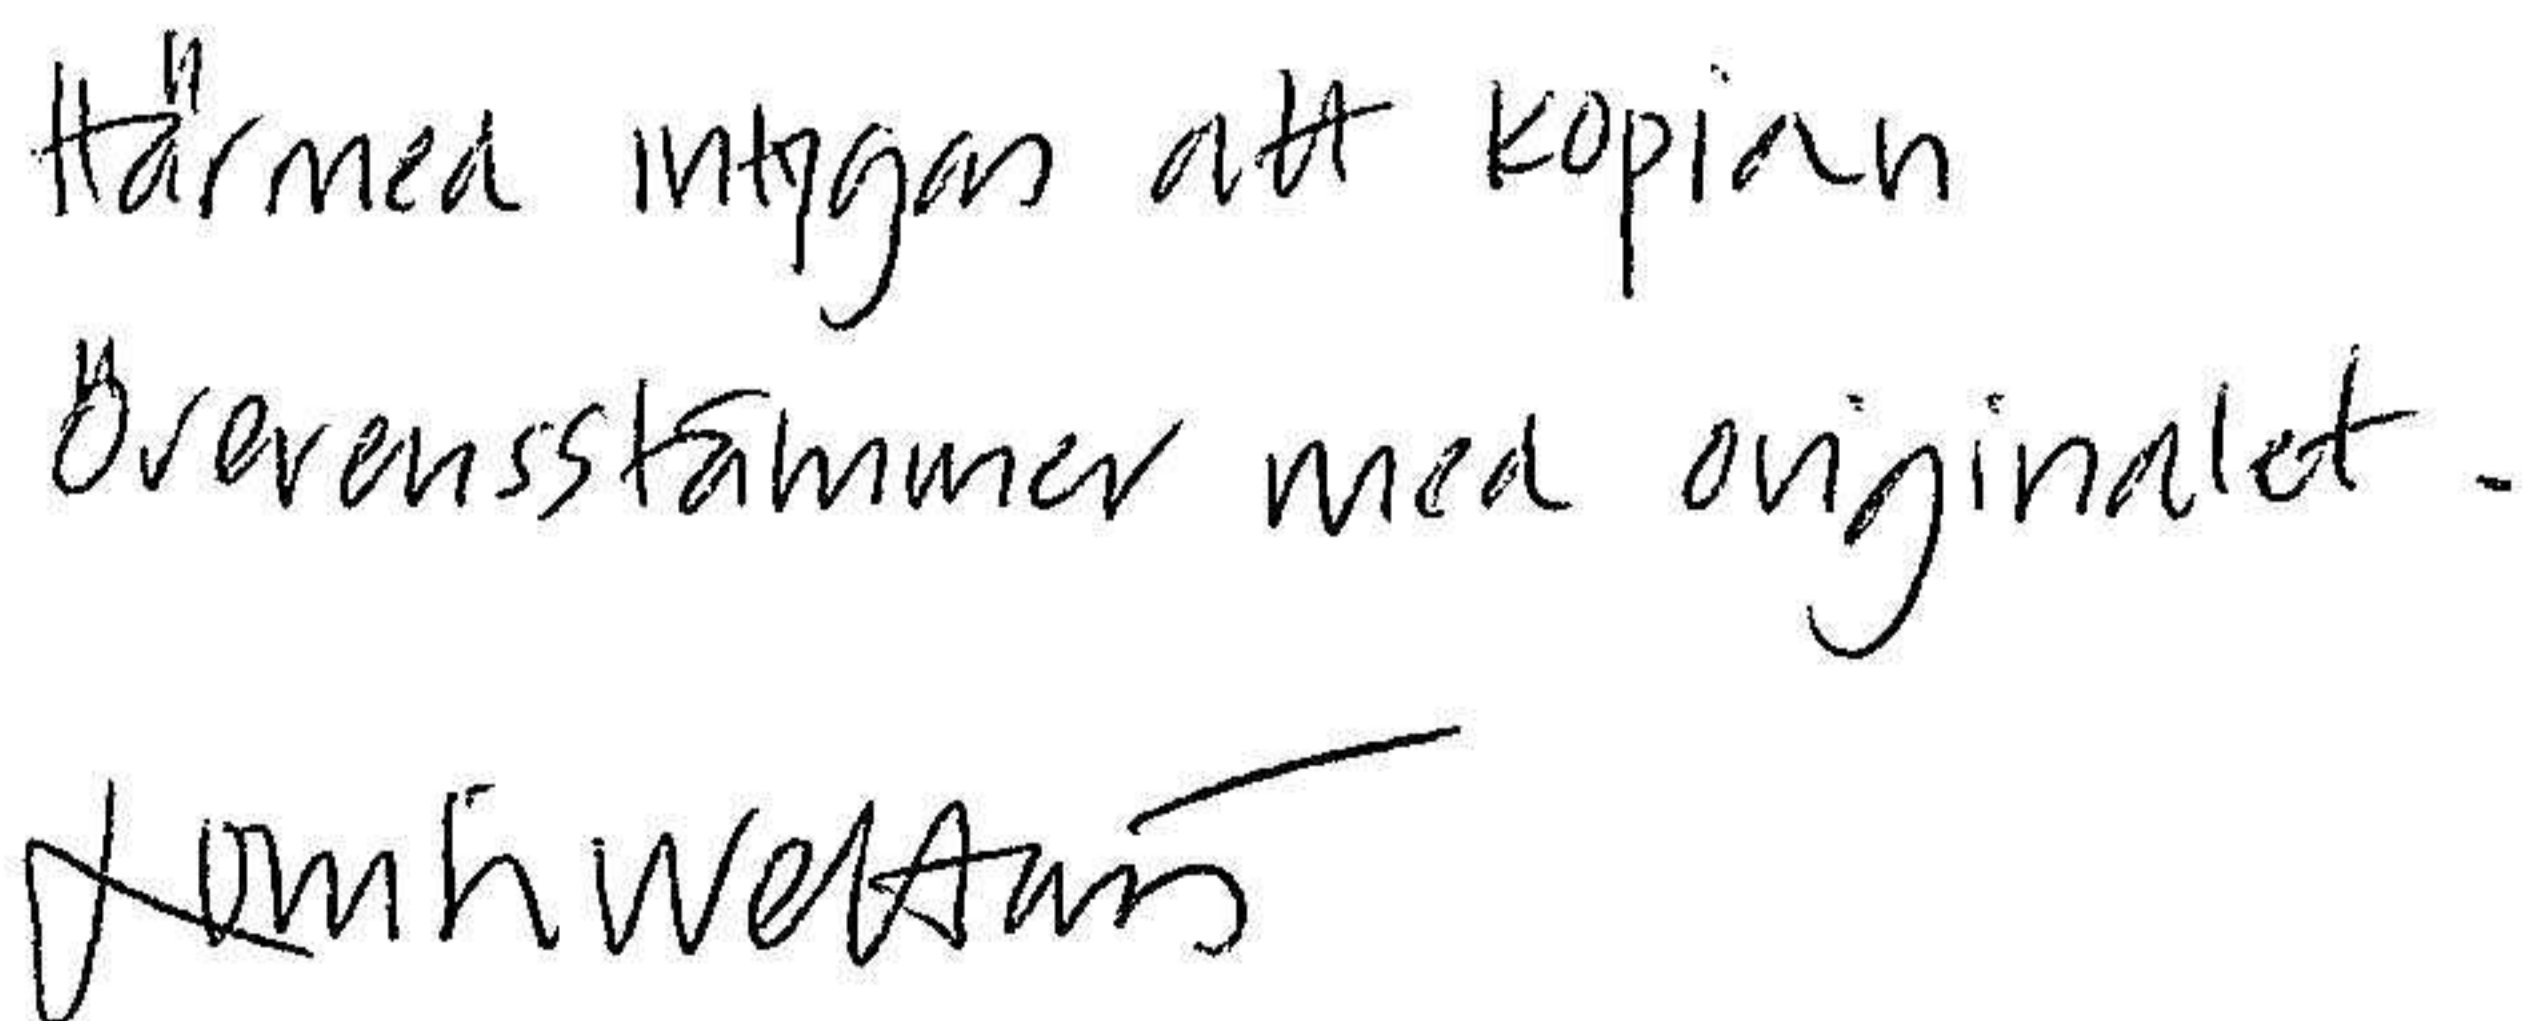 Härmed intygas att kopian
Överensstämmer med originalet.